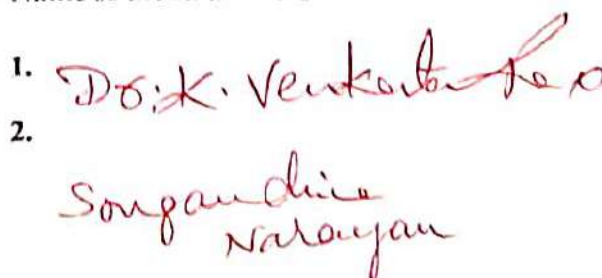 1. Dr. K. Venkata Rao
2.
Songandhine
Narayan